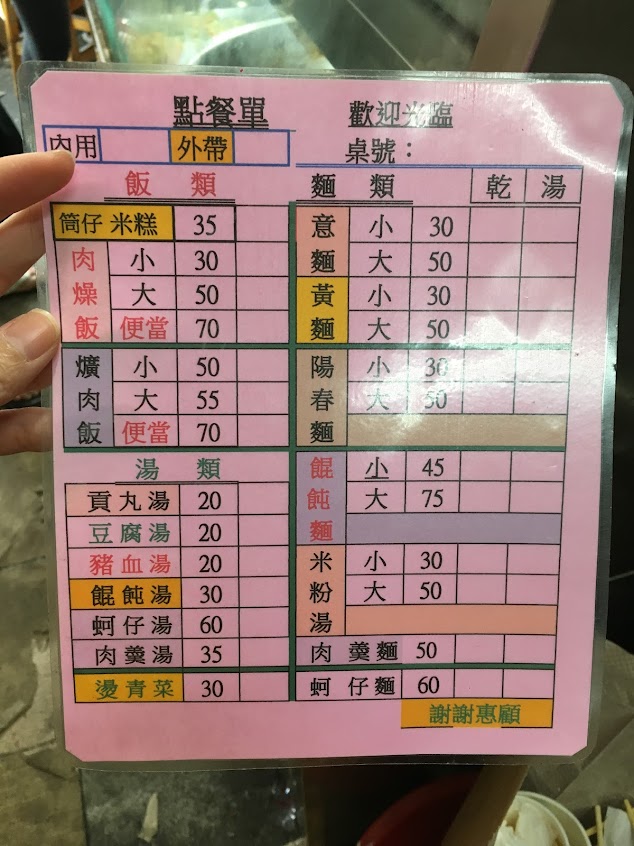 點餐單 歡迎光臨
內用 外帶 桌號：
飯類
筒仔米糕 35
肉燥飯 小 30
大 50
便當 70
爌肉飯 小 50
大 55
便當 70
湯類
貢丸湯 20
豆腐湯 20
豬血湯 20
餛飩湯 30
蚵仔湯 60
肉羹湯 35
燙青菜 30
麵類 乾 湯
意麵 小 30
大 50
黃麵 小 30
大 50
陽春麵 小 30
大 50
餛飩麵 小 45
大 75
米粉湯 小 30
大 50
肉羹麵 50
蚵仔麵 60
謝謝惠顧